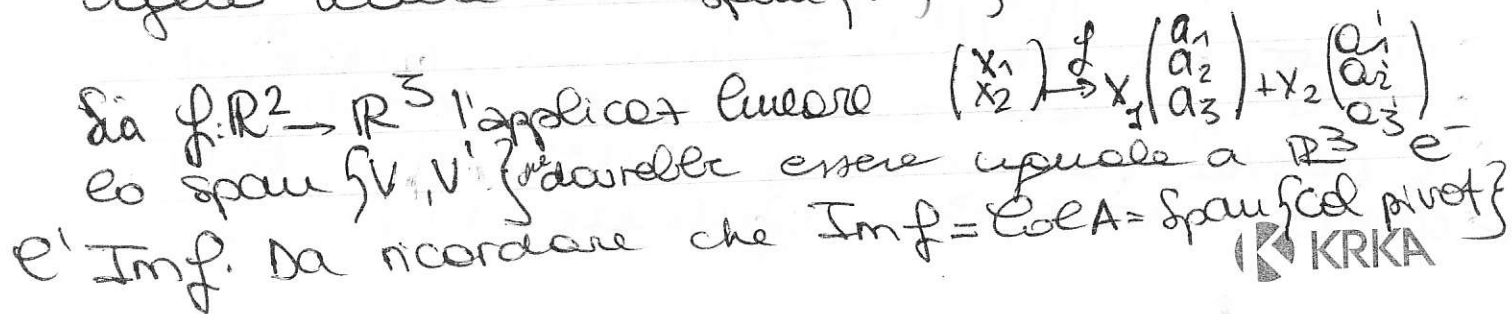 span
Sia f:R² → R³ l'applicaz lineare (x₁ x₂) →f x₁ (a₁ a₂ a₃) + x₂ (a₁' a₂' a₃')
lo span {v, v'} dovrebbe essere uguale a R³ e
è Imf. Da ricordare che Imf = Col A = Span {col pivot}
KRKA